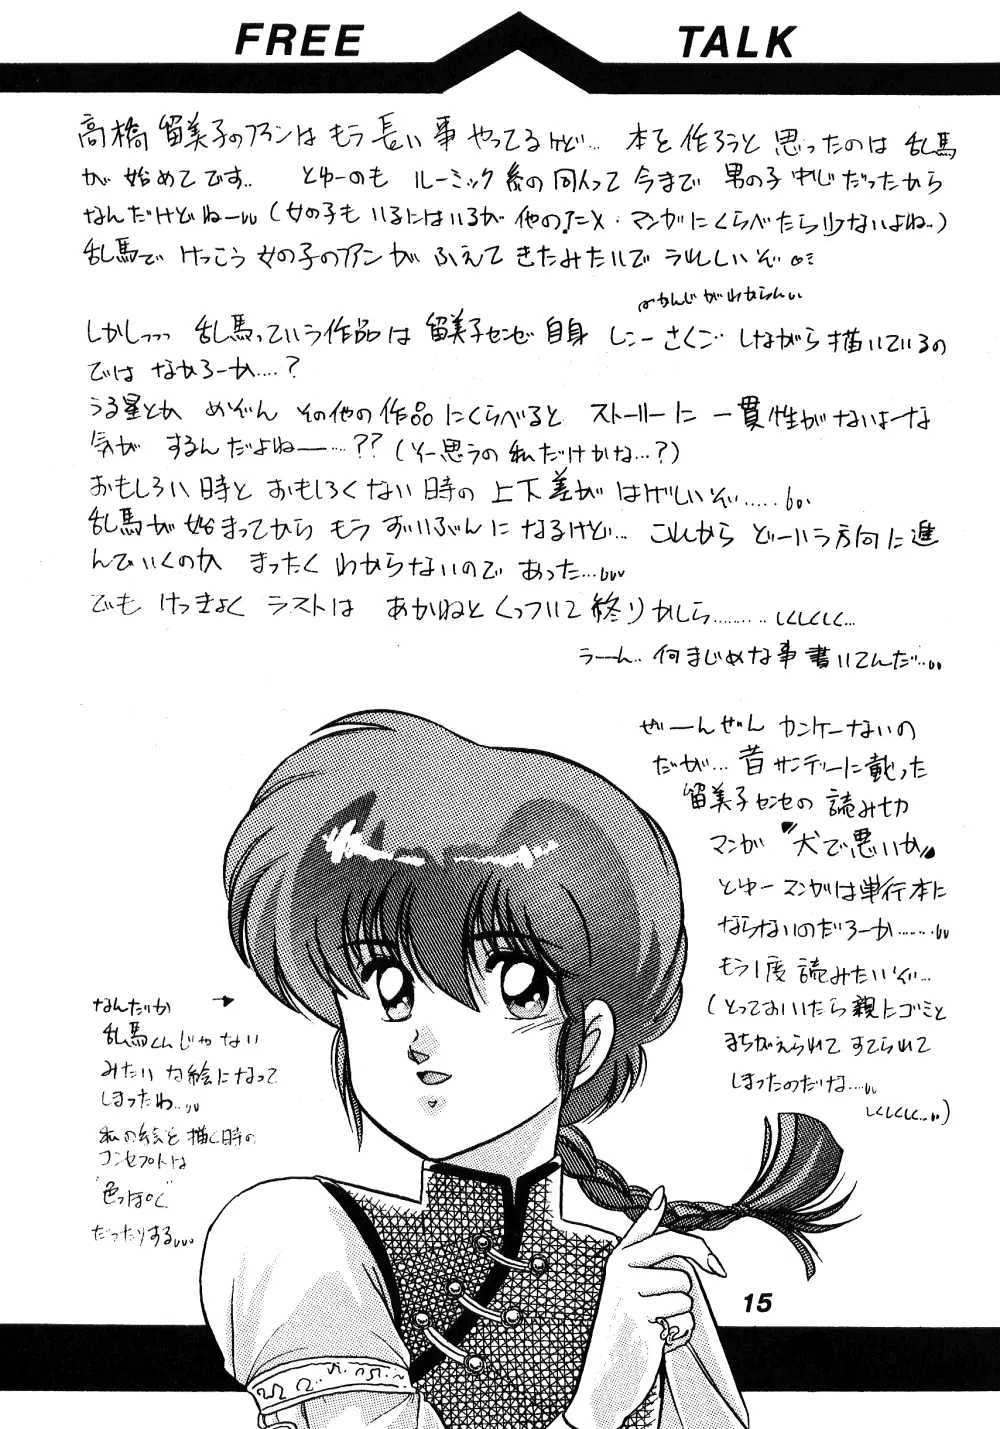 FREE TALK
高橋留美子のファンはもう長い事やってるけど… 本を作ろうと思ったのは乱馬
が始めてです.. とゆーのも ルーミック系の同人って今まで 男の子中心だったから
なんだけどねーw (女の子もいるにはいるが他のアニメ・マンガにくらべたら少ないよね..)
乱馬で けっこう女の子のファンが ふえてきたみたいで うれしいぞ
かんじがわからんい
しかしっっっ 乱馬っていう作品は 留美子センセ自身 しこーさくご しながら描いているの
ではなかろーか…?
うる星とか めぞん その他の作品にくらべると ストーリーに 一貫性がないよーな
気がするんだよねー…?? (そー思うの私だけかな…?)
おもしろい時と おもしろくない時の 上下差が はげしいぞ……
乱馬が始まってから もう ずいぶんに なるけど… これから どーいう方向に進
んでいくのか まったく わからないので あった…
でも けっきょく ラストは あかねと くっついて終りかしら……… しくしくしく…
うーん.. 何まじめな事書いてんだ…
ぜーんぜん カンケーないの
だが… 昔サンデーに載った
留美子センセの 読み切
マンガ "犬で悪いか"
とゆーマンガは単行本に
ならないのだろーか………
もう1度 読みたいぞ…
(とっておいたら親にゴミと
まちがえられて すてられて
しまったのだな…
しくしくしく…)
なんだか
乱馬くんじゃない
みたいな絵になって
しまったわ…
私の絵を描く時の
コンセプトは
"色っぽく"
だったりする…
15